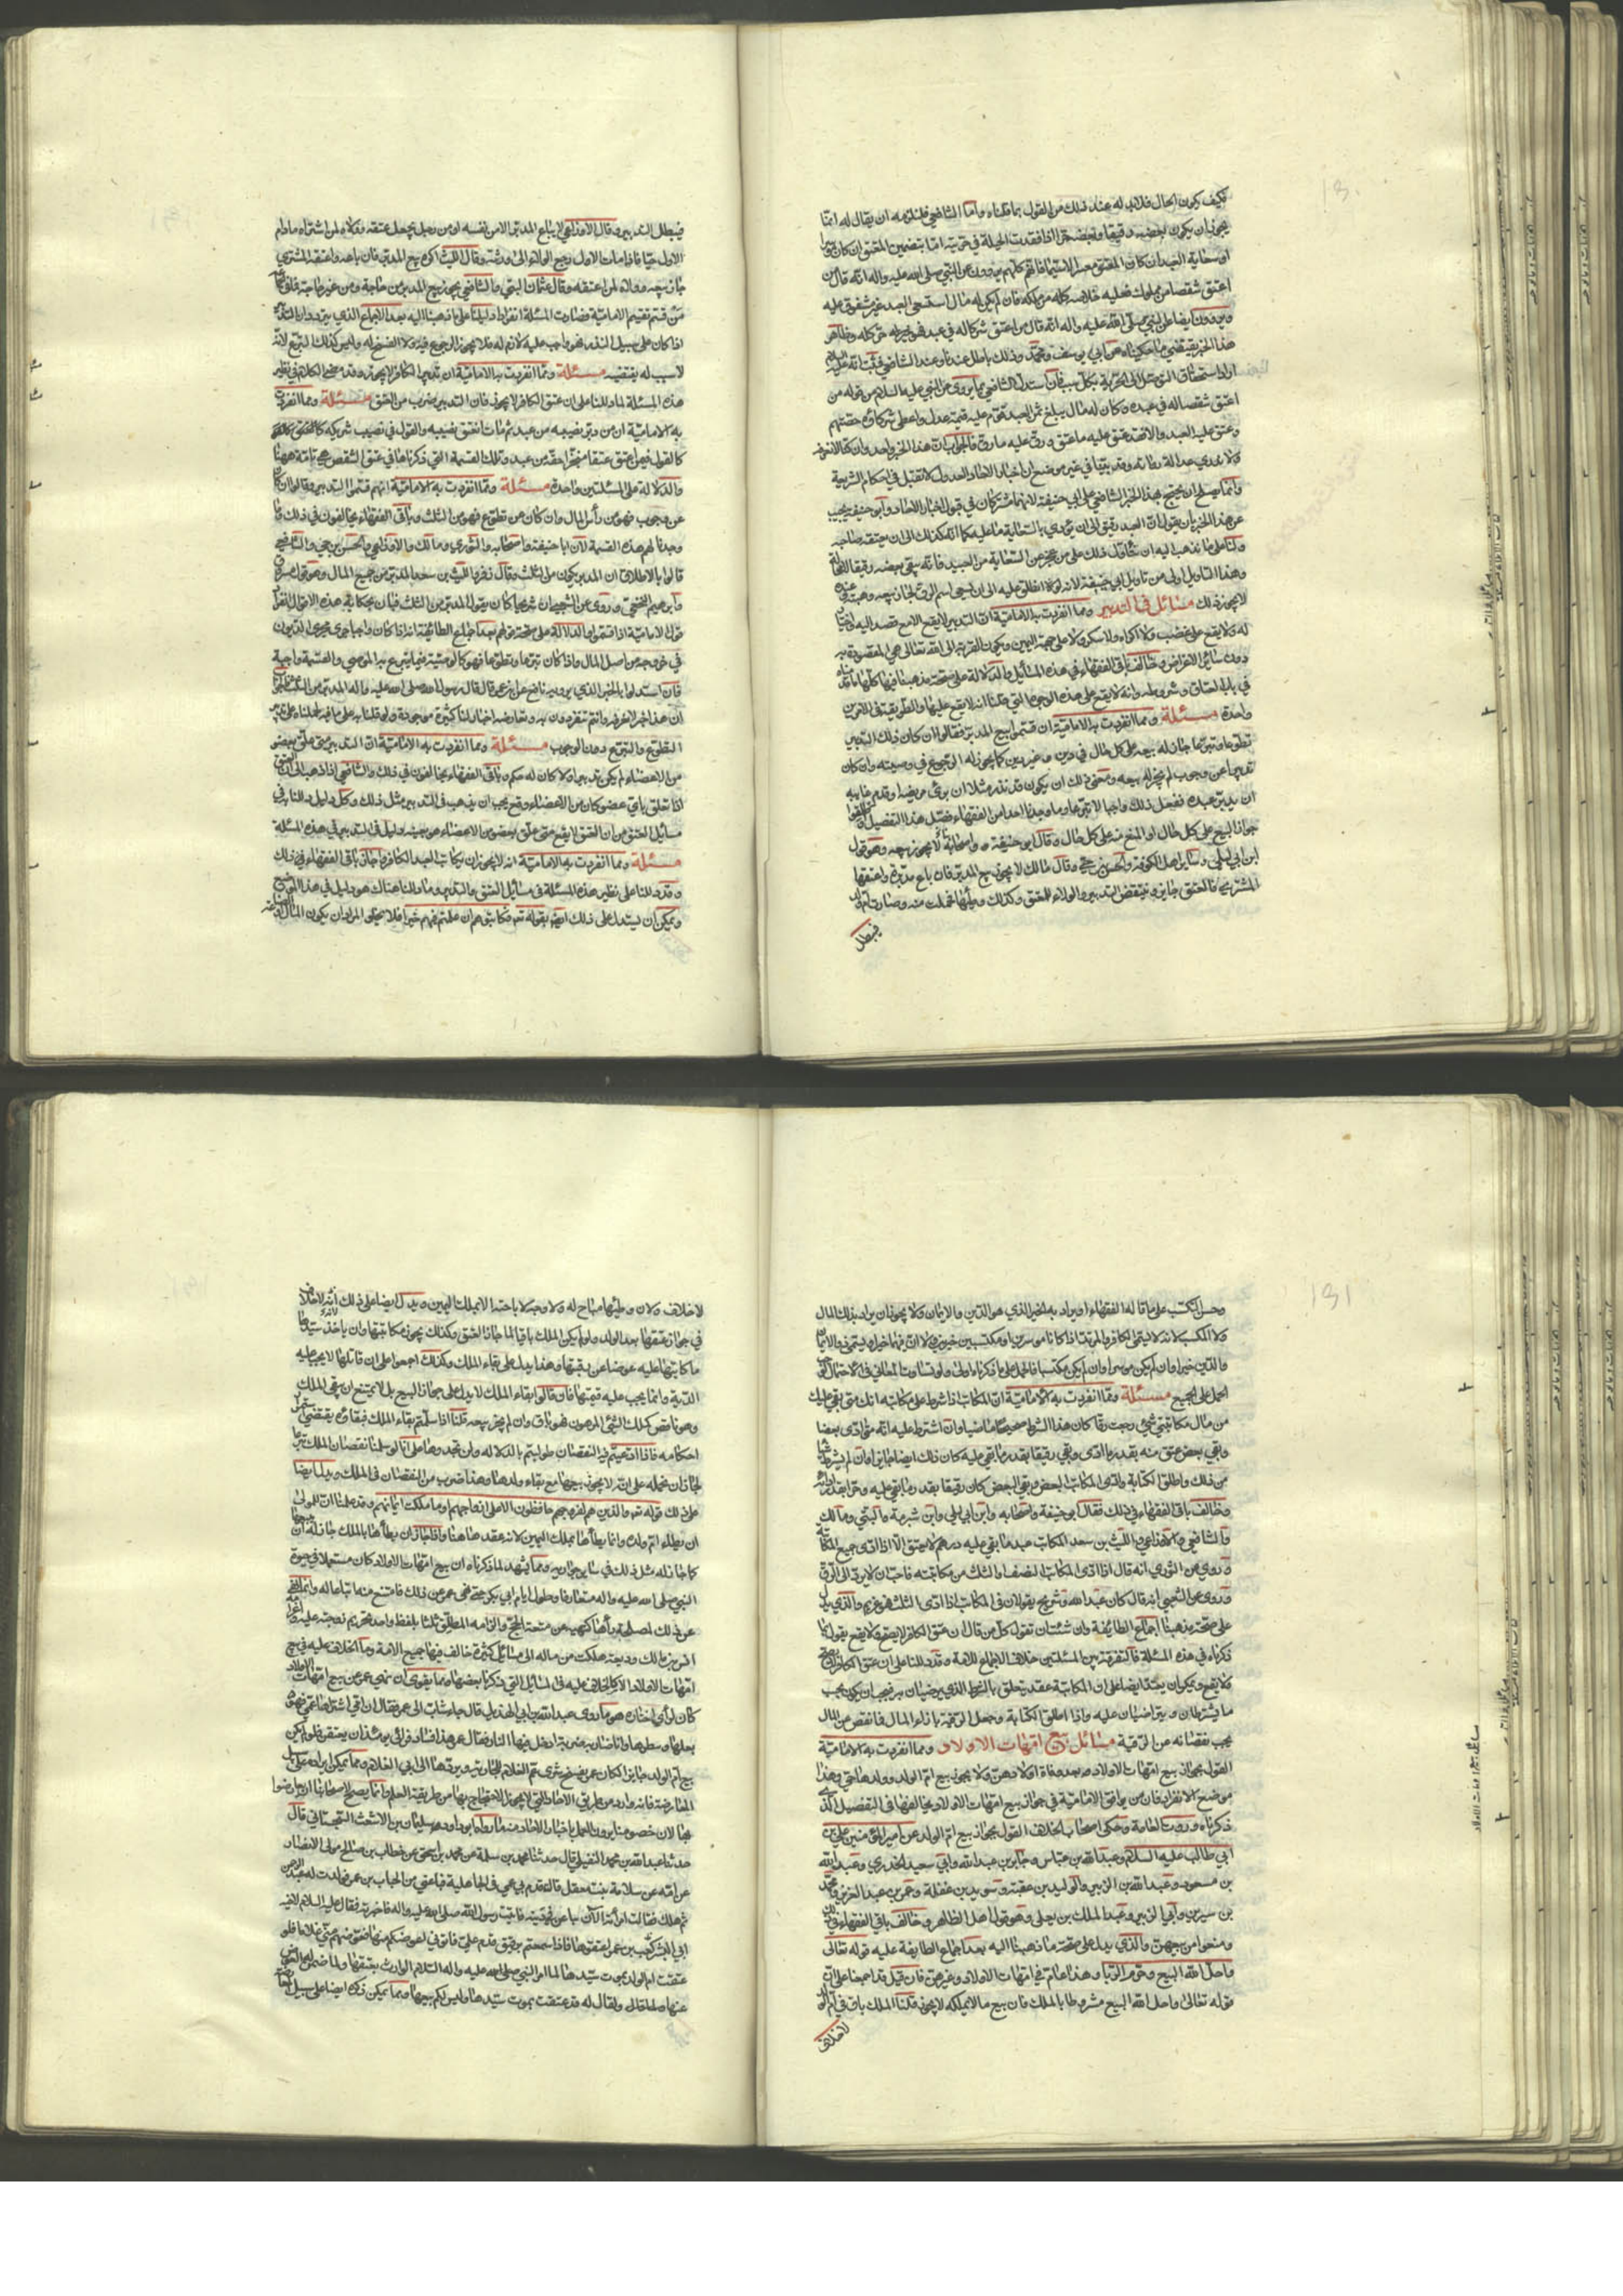 فكيف يكون الحال فلابد له عند ذلك من القول بما قلناه واما الشافعي فيلزمه ان يقال له انما
يجوز ان يكون بعضه رقيقا وبعضه حرا اذا فقدت الحيلة في حريته اما بتضمين المعتق ان كان موسرا
او سعاية العبد ان كان المعتق معسرا لاسيما فانهم كلهم يروون عن النبي صلى الله عليه واله انه قال من
اعتق شقصا من مملوك فعليه خلاصه كله من ماله فان لم يكن له مال استسعى العبد غير مشقوق عليه
ويروون ايضا عن النبي صلى الله عليه واله انه قال من اعتق شركا له في عبد فهو حر كله وظاهر
هذا الخبر يقتضي ما حكيناه عن ابي يوسف ومحمد وذلك باطل عندنا وعند الشافعي فثبت انه عليه السلام
اراد استحقاق التوصل الى الحرية بكل سبب فان استدل الشافعي بما يروى عن النبي عليه السلام من قوله من
اعتق شقصا له في عبده وكان له مال يبلغ ثمن العبد قوم عليه قيمة عدل واعطى شركاؤه حصتهم
وعتق عليه العبد والا فقد عتق عليه ما عتق ورق عليه ما رق فالجواب ان هذا الخبر واحد وان كنا لا نعرفه
ولا ندري عدالة رواته وقد بينا في غير موضع ان اخبار الاحاد العدول لا تقبل في احكام الشريعة
وانما يصلح ان يحتج بهذا الخبر الشافعي على ابي حنيفة لانهما مشتركان في قبول اخبار الاحاد وابو حنيفة يجيب
عن هذا الخبر بان يقول ان العبد رقيق الى ان يؤدي بالسعاية ما عليه كما انه كذلك الى ان يعتقه صاحبه
ولنا على ما نذهب اليه ان نتأول ذلك على من عجز عن السعاية من العبيد فانه يبقى بعضه رقيقا لا محالة
وهذا التاويل اولى من تاويل ابي حنيفة لانه لو كان اطلق عليه الى ان يسعى اسم الرق لجاز بيعه وهبته وعنده
لا يجوز ذلك مسائل في التدبير ومما انفردت به الامامية ان التدبير لا يقع الا مع قصد اليه واختيار
له ولا يقع على غضب ولا اكراه ولا سكر ولا على جهة اليمين وتكون القربة الى الله تعالى هي المقصودة به
دون سائر الاغراض وخالف باقي الفقهاء في هذه المسائل والدلالة على صحة مذهبنا فيها كلها ما قدمناه
في باب العتاق وشروطه وانه لا يقع على هذه الوجوه التي قلنا انه لا يقع عليها والطريقة في الامرين
واحدة مسئلة ومما انفردت به الامامية ان قسموا بيع المدبر فقالوا ان كان ذلك التدبير
تطوعا وتبرعا جاز له بيعه على كل حال في دين وغير دين كما يجوز له الرجوع في وصيته وان كان
تدبيرا عن وجوب لم يجز له بيعه ومعنى ذلك ان يكون قد نذر مثلا ان برئ مريضه او قدم غايبه
ان يدبر عبده ففعل ذلك واجبا لا تبرعا وما وجدنا احدا من الفقهاء فصل هذا التفصيل
جواز البيع على كل حال او المنع منه على كل حال وقال ابو حنيفة واصحابه لا يجوز بيعه وهو قول
ابن ابي ليلى وسائر اهل الكوفة والحسن بن حي وقال مالك لا يجوز بيع المدبر فان باع مدبرة واعتقها
المشتري فالعتق جايز وينتقض التدبير والولاء للمعتق وكذلك وطئها فحملت منه وصارت ام ولد
فيبطل
فيبطل التدبير وقال الاوزاعي لا يباع المدبر الا من نفسه او من رجل يعجل عتقه وولاؤه لمن اشتراه ما دام
الاول حيا فاذا مات الاول رجع الولاء الى ورثته وقال الليث اكره بيع المدبر فان باعه واعتقه المشتري
جاز بيعه وولاؤه لمن اعتقه وقال عثمان البتي والشافعي يجوز بيع المدبر من حاجة ومن غير حاجة
من قسم تقسيم الامامية فصارت المسئلة انفرادا دليلنا على ما ذهبنا اليه بعد الاجماع الذي يتردد ان التدبير
اذا كان على سبيل النذر فهو واجب عليه لازم له فلا يجوز الرجوع فيه ولا الفسخ له وليس كذلك التبرع لانه
لا سبب له يقتضيه مسئلة ومما انفردت به الامامية ان تدبير الكافر لا يجوز وقد مضى الكلام في نظير
هذه المسئلة لما دللنا على ان عتق الكافر لا يجوز فان التدبير ضرب من العتق مسئلة ومما انفردت
به الامامية ان من دبر نصيبه من عبد ثم مات انعتق نصيبه والقول في نصيب شريكه
كالقول فيمن اعتق عتقا منجزا حقه من عبد وتلك القسمة التي ذكرناها في عتق الشقص هي ثابتة ههنا
والدلالة على المسئلتين واحدة مسئلة ومما انفردت به الامامية انهم قسموا التدبير وقالوا ان كان
عن وجوب فهو من رأس المال وان كان عن تطوع فهو من الثلث وباقي الفقهاء يخالفون في ذلك وما
وجدنا لهم هذه القسمة لان ابا حنيفة واصحابه والثوري ومالك والاوزاعي والحسن بن حي والشافعي
قالوا بالاطلاق ان المدبر يكون من الثلث وقال زفر والليث بن سعد المدبر من جميع المال وهو قول مسروق
وابراهيم النخعي وروى عن الشعبي ان شريحا كان يقول المدبر من الثلث فبان بحكاية هذه الاقوال انفراد
قول الامامية اذا قسموا والدلالة على صحة قولهم بعد اجماع الطائفة انه اذا كان واجبا جرى مجرى الديون
في خروجه من اصل المال واذا كان تبرعا وتطوعا فهو كالوصية فيما يتبرع به الموصي والقسمة واجبة
فان استدلوا بالخبر الذي يرويه نافع عن ابن عمر قال قال رسول الله صلى الله عليه واله المدبر من الثلث
ان هذا خبر لا نعرفه وانتم تنفردون به وتعارضه اخبار لنا كثيرة موجودة ولو قلنا به على ما فيه لحملناه على تدبير
التطوع والتبرع دون الوجوب مسئلة ومما انفردت به الامامية ان التدبير متى علق ببعض
من الاعضاء لم يكن تدبيرا ولا كان له حكم وباقي الفقهاء يخالفون في ذلك والشافعي اذا ذهب الى ان العتق
اذا تعلق باي عضو كان من الاعضاء وقع يجب ان يذهب في التدبير مثل ذلك وكل دليل دللنا به في
مسائل العتق من ان العتق لا يقع متى علق بعضو من الاعضاء هو بعينه دليل في التدبير في هذه المسئلة
مسئلة ومما انفردت به الامامية انه لا يجوز ان يكاتب العبد الكافر واجاز باقي الفقهاء في ذلك
وقد دللنا على نظير هذه المسئلة في مسائل العتق والتدبير وما دللنا هناك هو دليل في هذا الموضع
ويمكن ان يستدل على ذلك ايضا بقوله تعالى فكاتبوهم ان علمتم فيهم خيرا فلا يخلو المراد ان يكون المال
وحسن التكسب على ما قاله الفقهاء او يراد به الخير الذي هو الدين والايمان ولا يجوز ان يراد بذلك المال
ولا المكسب لانه لا يسمى الكافر والمرتد اذا كانا موسرين او مكتسبين خيرين ولا ان فيهما خيرا ويسمى ذو الايمان
والدين خيرا وان لم يكن موسرا وان لم يكن مكتسبا فالحمل على ما ذكرناه اولى ولو تساوت المعاني في الاحتمال لوجب
الحمل على الجميع مسئلة ومما انفردت به الامامية ان المكاتب اذا شرط على مكاتبه انك متى بقي عليك
من مال مكاتبتي شيء رجعت رقا كان هذا الشرط صحيحا ماضيا وان اشترط عليه انه متى ادى بعضا
وبقي بعض عتق منه بقدر ما ادى وبقي رقيقا بقدر ما بقي عليه كان ذلك ايضا جايزا وان لم يشرط شيئا
من ذلك واطلق الكتابة وادى المكاتب البعض وبقي البعض كان رقيقا بقدر ما بقي عليه وحرا بقدر ما ادى
وخالف باقي الفقهاء في ذلك فقال ابو حنيفة واصحابه وابن ابي ليلى وابن شبرمة والبتي ومالك
والشافعي والاوزاعي والليث بن سعد المكاتب عبد ما بقي عليه درهم لا يعتق الا اذا ادى جميع الكتابة
وروي عن الثوري انه قال اذا ادى المكاتب النصف والثلث من مكاتبته فاحب ان لا يرد الى الرق
وروى عن الشعبي انه قال كان عبد الله وشريح يقولان في المكاتب اذا ادى الثلث فهو غريم والذي يدل
على صحة مذهبنا اجماع الطائفة وان شئتان تقول كل من قال ان عتق الكافر لا يصح ولا يقع يقول بما
ذكرناه في هذه المسئلة فالتفرقة بين المسئلتين خلاف الاجماع للامة وقد دللنا على ان عتق الكافر لا يصح
ولا يقع ويمكن ان يستدل ايضا على ان المكاتبة عقد يتعلق بالشرط الذي يرضيان به فيجب ان يكون بحسب
ما يشترطان ويتراضيان عليه واذا اطلق الكتابة وجعل الرقبة بازاء المال فما نقص من المال
يجب نقصانه من الرقبة مسائل بيع امهات الاولاد ومما انفردت به الامامية
القول بجواز بيع امهات الاولاد بعد وفاة اولادهن ولا يجوز بيع ام الولد وولدها حي وهذا
موضع الانفراد فان من يوافق الامامية في جواز بيع امهات الاولاد يخالفها في التفصيل الذي
ذكرناه وروت العامة وحكى اصحاب الخلاف القول بجواز بيع ام الولد عن امير المؤمنين علي بن
ابي طالب عليه السلام وعبد الله بن عباس وجابر بن عبد الله وابي سعيد الخدري وعبد الله
بن مسعود وعبد الله بن الزبير والوليد بن عقبة وسويد بن غفلة وعمر بن عبد العزيز ومحمد
بن سيرين وابي الزبير وعبد الملك بن يعلى وهو قول اهل الظاهر وخالف باقي الفقهاء في ذلك
ومنعوا من بيعهن والذي يدل على صحة ما ذهبنا اليه بعد اجماع الطايفة عليه قوله تعالى
واحل الله البيع وحرم الربا وهذا عام في امهات الاولاد وغيرهن فان قيل قد اجمعنا على ان
قوله تعالى واحل الله البيع مشروط بالملك فان بيع ما لا يملكه لا يجوز قلنا الملك باق في ام الولد
لا خلاف
لا خلاف ولان وطئها مباح له ولا وجه لاباحته الا بملك اليمين ويدل ايضا على ذلك انه لا خلاف
في جواز عتقها بعد الولد ولو لم يكن الملك باقيا لما جاز العتق وكذلك يجوز مكاتبتها وان ياخذ سيدها
ما كاتبها عليه عوضا عن رقبتها وهذا يدل على بقاء الملك وكذلك اجمعوا على ان قاتلها لا يجب عليه
الدية وانما يجب عليه قيمتها فان قالوا بقاء الملك لا يدل على جواز البيع بل لا يمتنع ان يبقى الملك
وهو ناقص كملك الشيء المرهون فهو باق وان لم يجز بيعه قلنا اذا سلمتم بقاء الملك فبقاؤه يقتضي استمرار
احكامه فاذا ادعيتم فيه النقصان طولبتم بالدلالة ولن تجدوها على انا لو سلمنا نقصان الملك تبرعا
لجاز ان نحمله على انه لا يجوز بيعها مع بقاء ولدها وهذا ضرب من النقصان في الملك ويدل ايضا
على ذلك قوله تعالى والذين هم لفروجهم حافظون الا على ازواجهم او ما ملكت ايمانهم وقد علمنا ان للمولى
ان يطاء ام ولده وانما يطأها بملك اليمين لانه لا عقد هاهنا واذا جاز ان يطأها بالملك جاز له ان يبيعها
كما جاز له مثل ذلك في ساير جواريه ومما يشهد لما ذكرناه ان بيع امهات الاولاد كان مستعملا في حيوة
النبي صلى الله عليه واله متعارفا وطول ايام ابي بكر حتى نهى عمر عن ذلك فامتنع منه اتباعا له وانما نهى
عن ذلك لمصلحة رأها كنهيه عن متعة الحج والزامه المطلق ثلثا بلفظ واحد تحريم زوجته عليه
مالك وديعة هلكت من ماله الى مسائل كثيرة خالف فيها جميع الامة وما الخلاف عليه في بيع
امهات الاولاد الا كالخلاف عليه في المسائل التي ذكرنا بعضها ومما يقوى ان نهي عمر عن بيع امهات الاولاد
كان لرأي اختاره هو ما روى عبد الله بن ابي الهذيل قال جاء شاب الى عمر فقال ان امي اشتراها عمي فهو
عمر هذا فساد فرأى يومئذ ان يعتقن فلو لم يكن
بيع ام الولد جايزا لكان عمر يفسخ شرى عم الغلام للجارية ويردها الى ابي الغلام ومما يمكن ايراده على سبيل
المعارضة فانه وارد من طريق الاحاد التي لا يجوز الاحتجاج بها من طريقة العلم وانما يصلح لاصحابنا ان يعارضوا
بها لان خصومنا يرون العمل باخبار الاحاد منه ما رواه ابو داود سليمان بن الاشعث السجستاني قال
حدثنا عبد الله بن محمد النفيلي قال حدثنا محمد بن سلمة عن محمد بن اسحق عن خطاب بن صالح مولى الانصار
عن امه عن سلامة بنت معقل قالت قدم بي عمي في الجاهلية فباعني من الحباب بن عمرو فولدت له عبد الرحمن
ثم هلك فقالت امرأته الان تباعين في دينه فاتيت رسول الله صلى الله عليه واله فاخبرته فقال عليه السلام لاخيه
ابي اليسر كعب بن عمرو اعتقوها فاذا سمعتم برقيق قدم علي فاتوني اعوضكم منها فاعتقوني وعوضهم مني غلاما فلو
عتقت ام الولد بموت سيدها لما امر النبي صلى الله عليه واله السلام الوارث بعتقها ولما ضمن له العوض
عنها ولقال له قد عتقت بموت سيدها وليس لكم بيعها ومما يمكن ذكره ايضا على سبيل